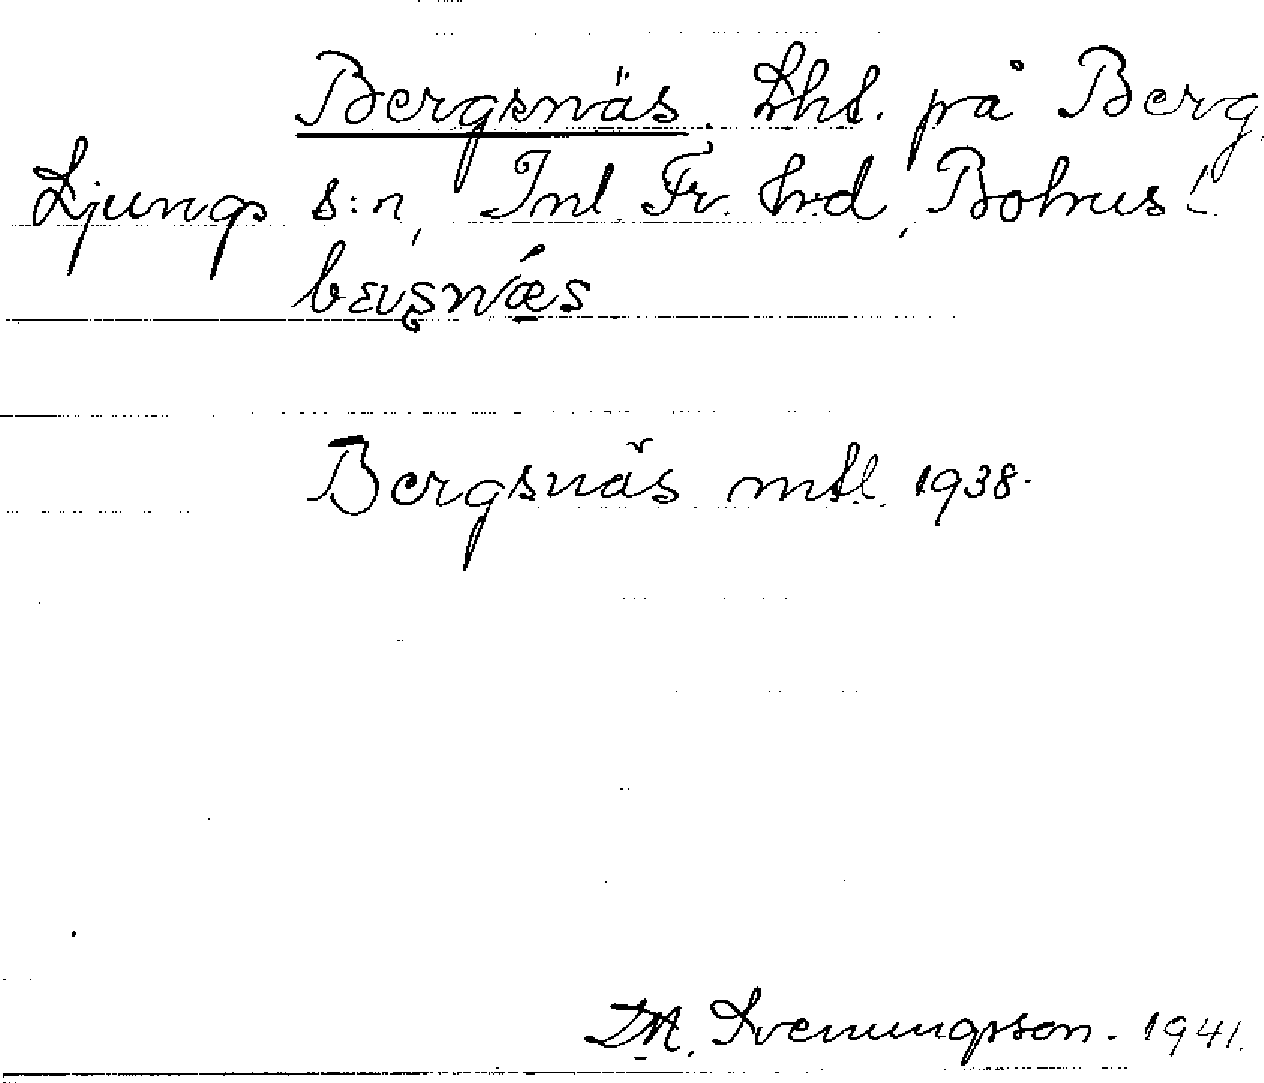 Bergsnäs. Lht. på Berg,
Ljungs s:n, Inl. Fr. hd, Bohus l.
Bergsnäs mtl. 1938.
Svenungsson. 1941.